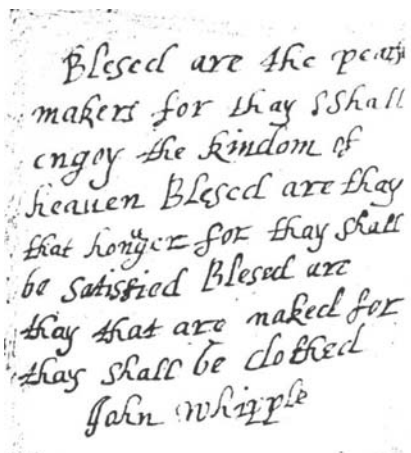 Blesed are the peace
makers for thay sShall
engoy the kindom of
heauen Blesed are thay
that honger for thay shall
be satisfied Blesed are
thay that are naked for
thay shall be clothed
John Whipple